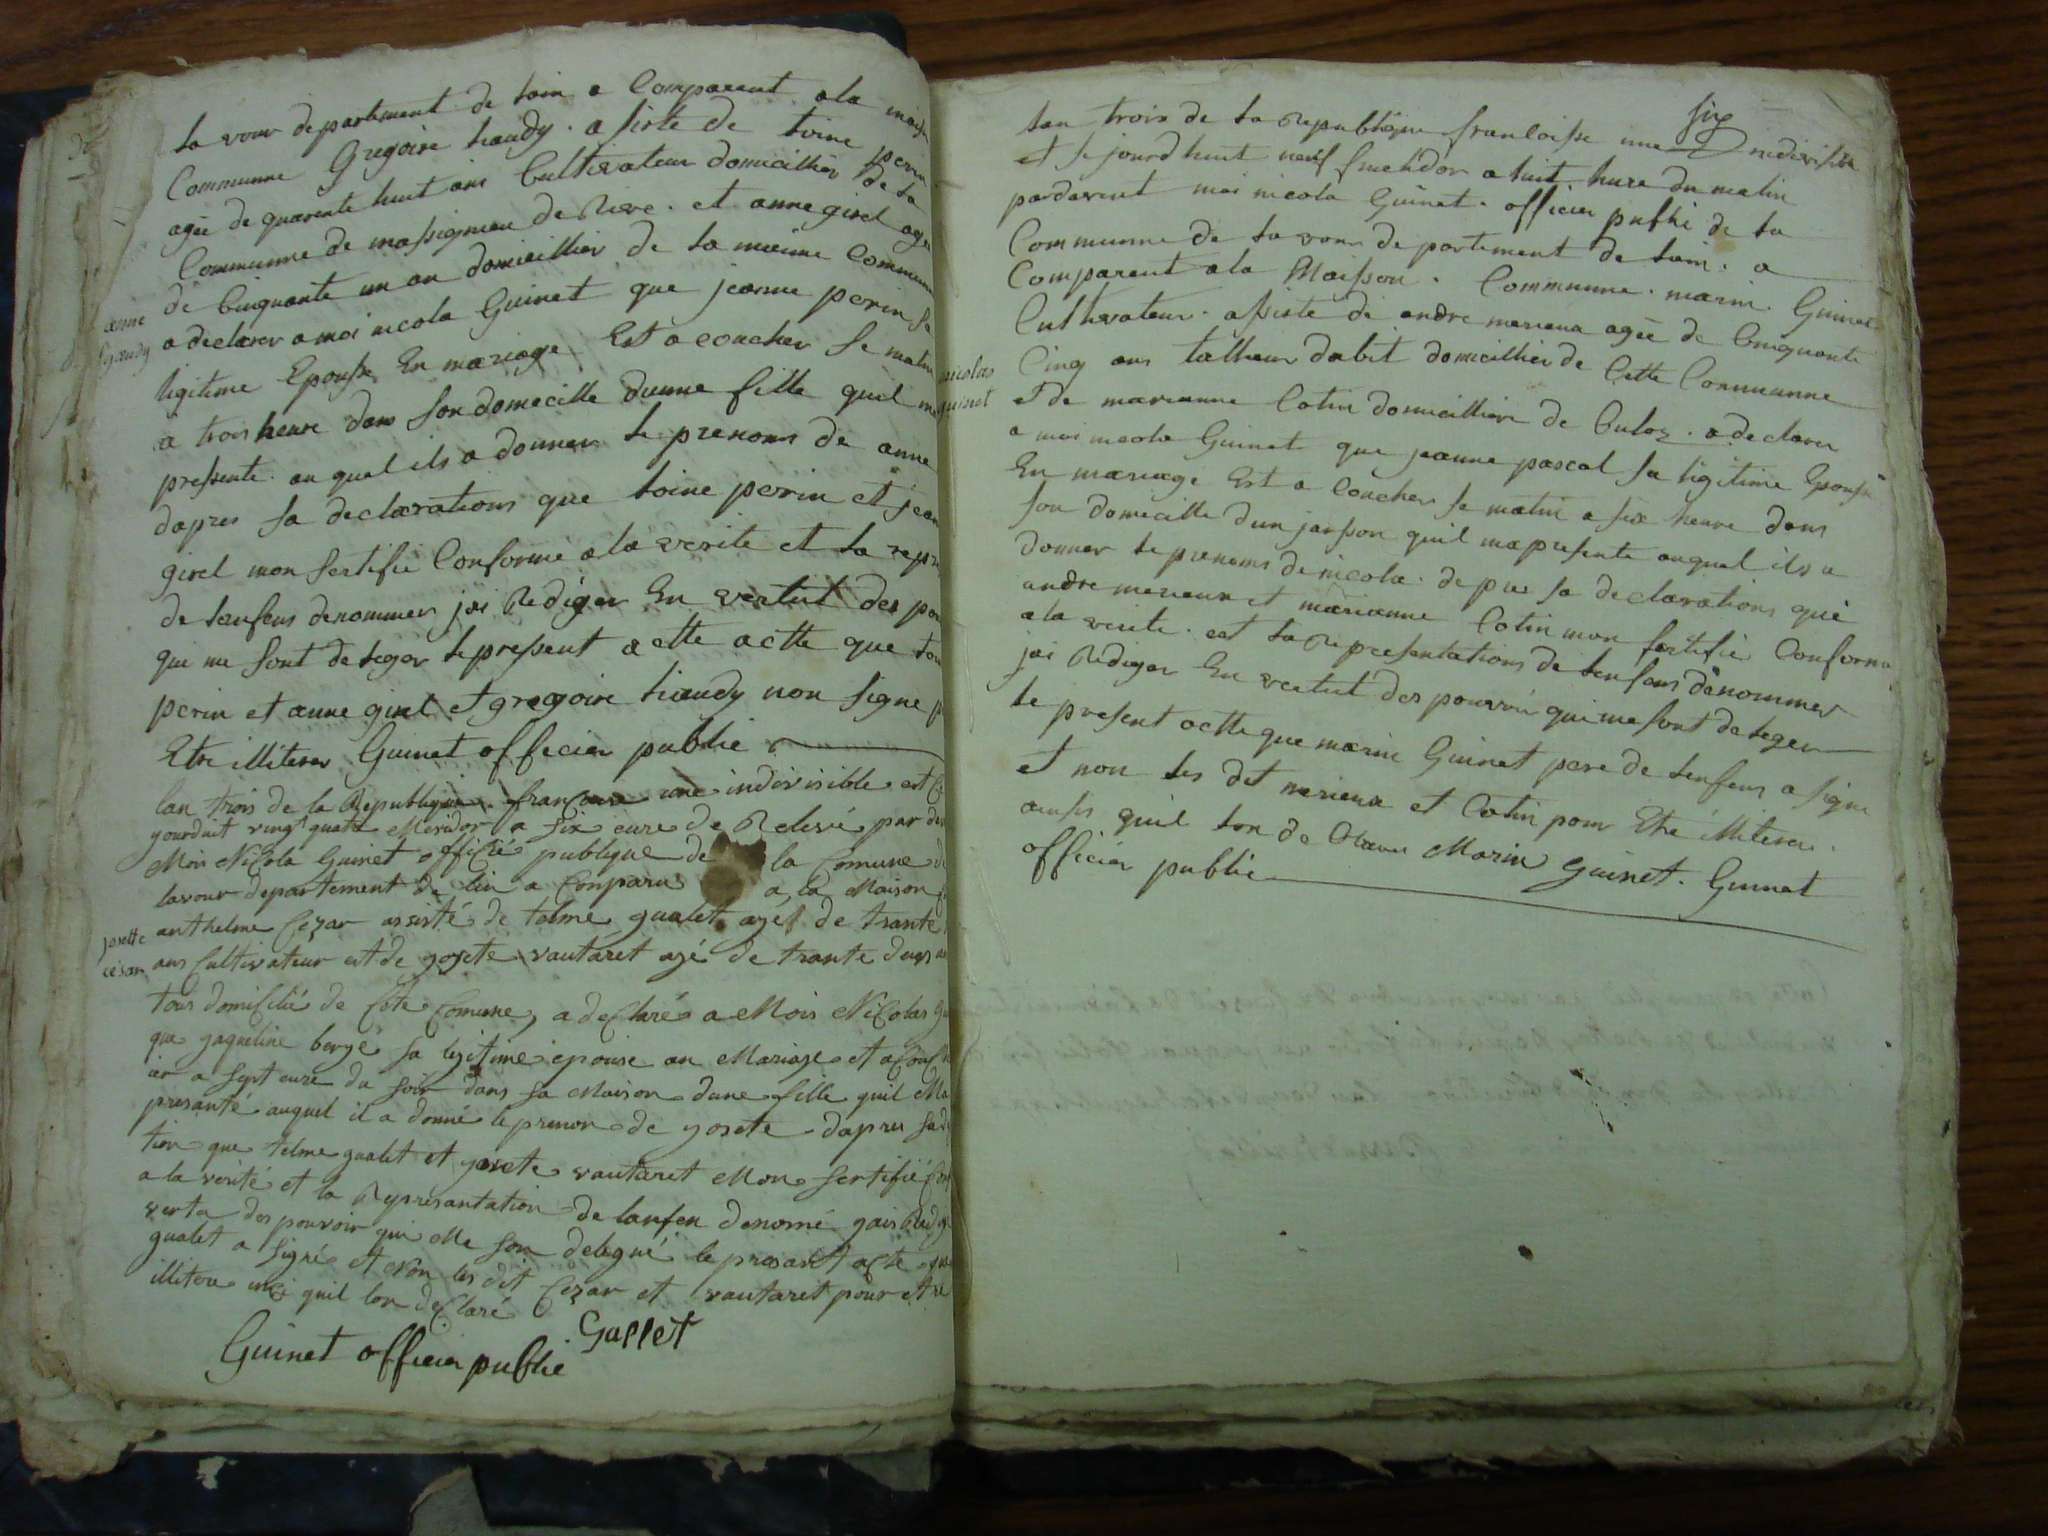 la vour departement de lain a Comparent ala maison
Communne Gregoire liaudy . asisté de toine perin
agée de quarente huit ans Cultivateur domicillier de la
Communne de massignieu de Rive . et anne girel agée
de Cinquante un an domicillier de la mieme Communne
anne
liaudy
a declarer a moi nicola Guinet que jeanne perin sa
ligitime Epousse En mariage Est acoucher se matin
a trois heure dans son domicille dunne fille quil ma
pressente . au quel ils a donner le prenoms de anne
dapres sa declarations que toine perin et jeanne
girel mon sertifié Conforme a la verite et la repre
de lenfens denommer jai Rediger En vertut des pou
qui me sont deleger le pressent acette actte que toine
perin et anne girel et gregoire liaudy non signe p
Etre illiterer Guinet officier publié
lan trois de la Republique francoise une indivisible est ce
yourduit vingt quatre Meridor a six eure de Relevé par de
Moi Nicola Guinet officié publique de la Comune de
lavour departement de lin a Conparu a la Maison
anthelme Cezar assisté de telme gualet agé de trante
josette
césar
ans Cultivateur et de yosete vautaret agé de trante deux
tous domisilié de Cete Comune, a declaré a Mois Nicolas Gu
que jaqueline bergé sa legitime epouse an Mariage et acouch
ier a sept eure du soir dans sa Maison dune fille quil Ma
presanté auquel il a donné le prenon de yosete dapres sa d
tion que telme gualet et yosete vautaret Mon sertifié Con
a la verité et la Represantation de lanfen denomé gais Redig
vertu des pouvoir qui Me son delegué le presant acte que
gualet a signé et Non les dit Cezar et vautaret pour etre
illitere insi quil lon declaré
Gallet
Guinet officier publié
six
lan trois de la Republique francoisse une indivissible
et se jourd huit neuf fructidor a huit hure du matin
pardevent moi nicola Guinet . officier publié de la
Communne de la vour departement de lain . a
Comparent ala Maisson . Communne . marin Guinet
Cultivateur . asisté de andre merieux agée de Cinquante
nicolas
guinet
Cinq ans tallieur dabit domicillier de Cette Communne
et de marianne Cotin domicilliere de Culoz . a declarer
a moi nicola Guinet que jeanne pascal sa ligitime Epousse
En mariage Est a coucher se matin a six heure dans
son domicille dun jarsson quil mapresente auquel ils a
donner le prenoms de nicola . depres sa declarations que
andre merieux et marianne Cotin mon sertifié Conforme
a la verite . est la Representations de lenfens dénommer
jai Rediger En vertut des pouvoir qui me sont deleger
le present actte que marin Guinet pere de lenfens a signe
et non les det merieux et Cotin pour Etre illiterer .
ainsis quil lon de Clarer Marin guinet . Guinet
officier publié